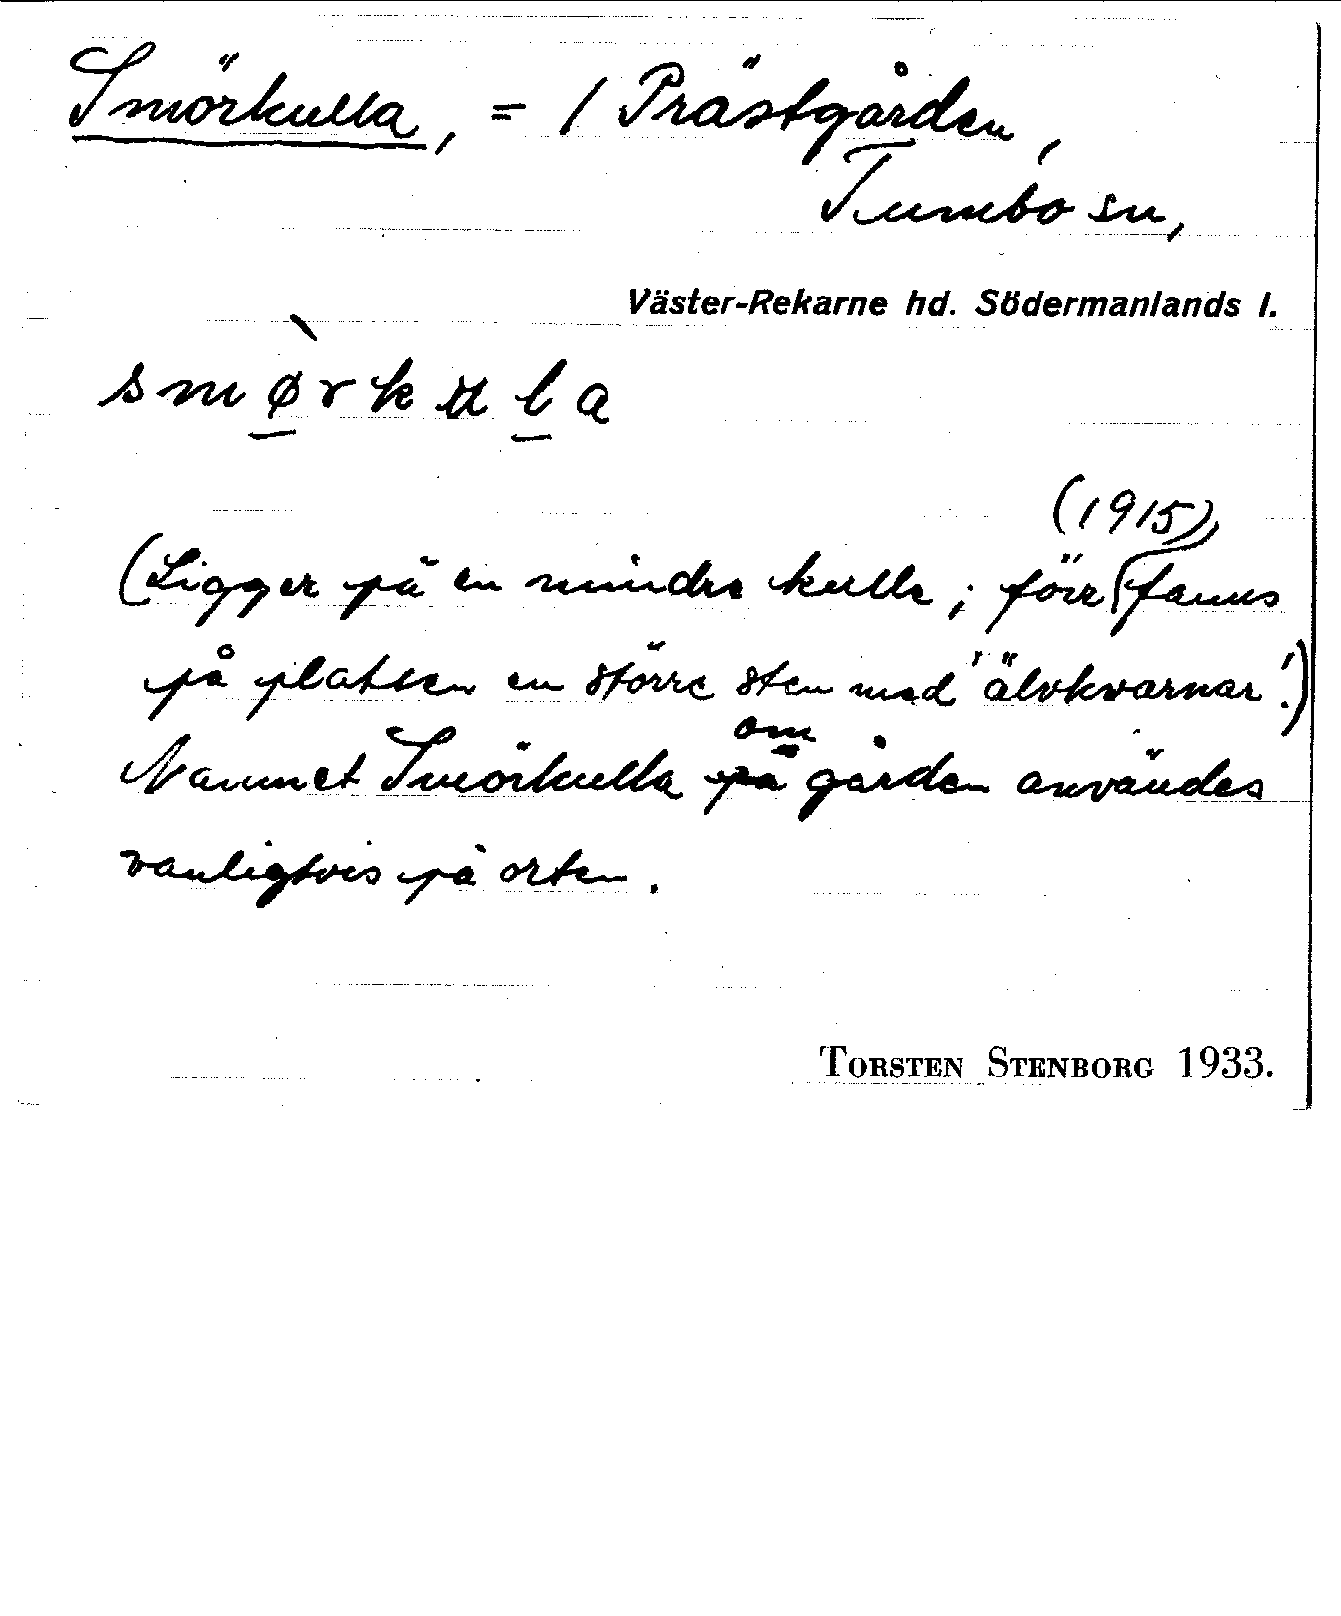 Smörkulla, = / Prästgården,
Tumbo sn,
Väster-Rekarne hd. Södermanlands l.
smø̀rkula
(1915)
(Ligger på en mindre kulle; förr fanns
på platsen en större sten med 'älvkvarnar'.)
om
Namnet Smörkulla på gården användes
vanligtvis på orten.
TORSTEN STENBORG 1933.